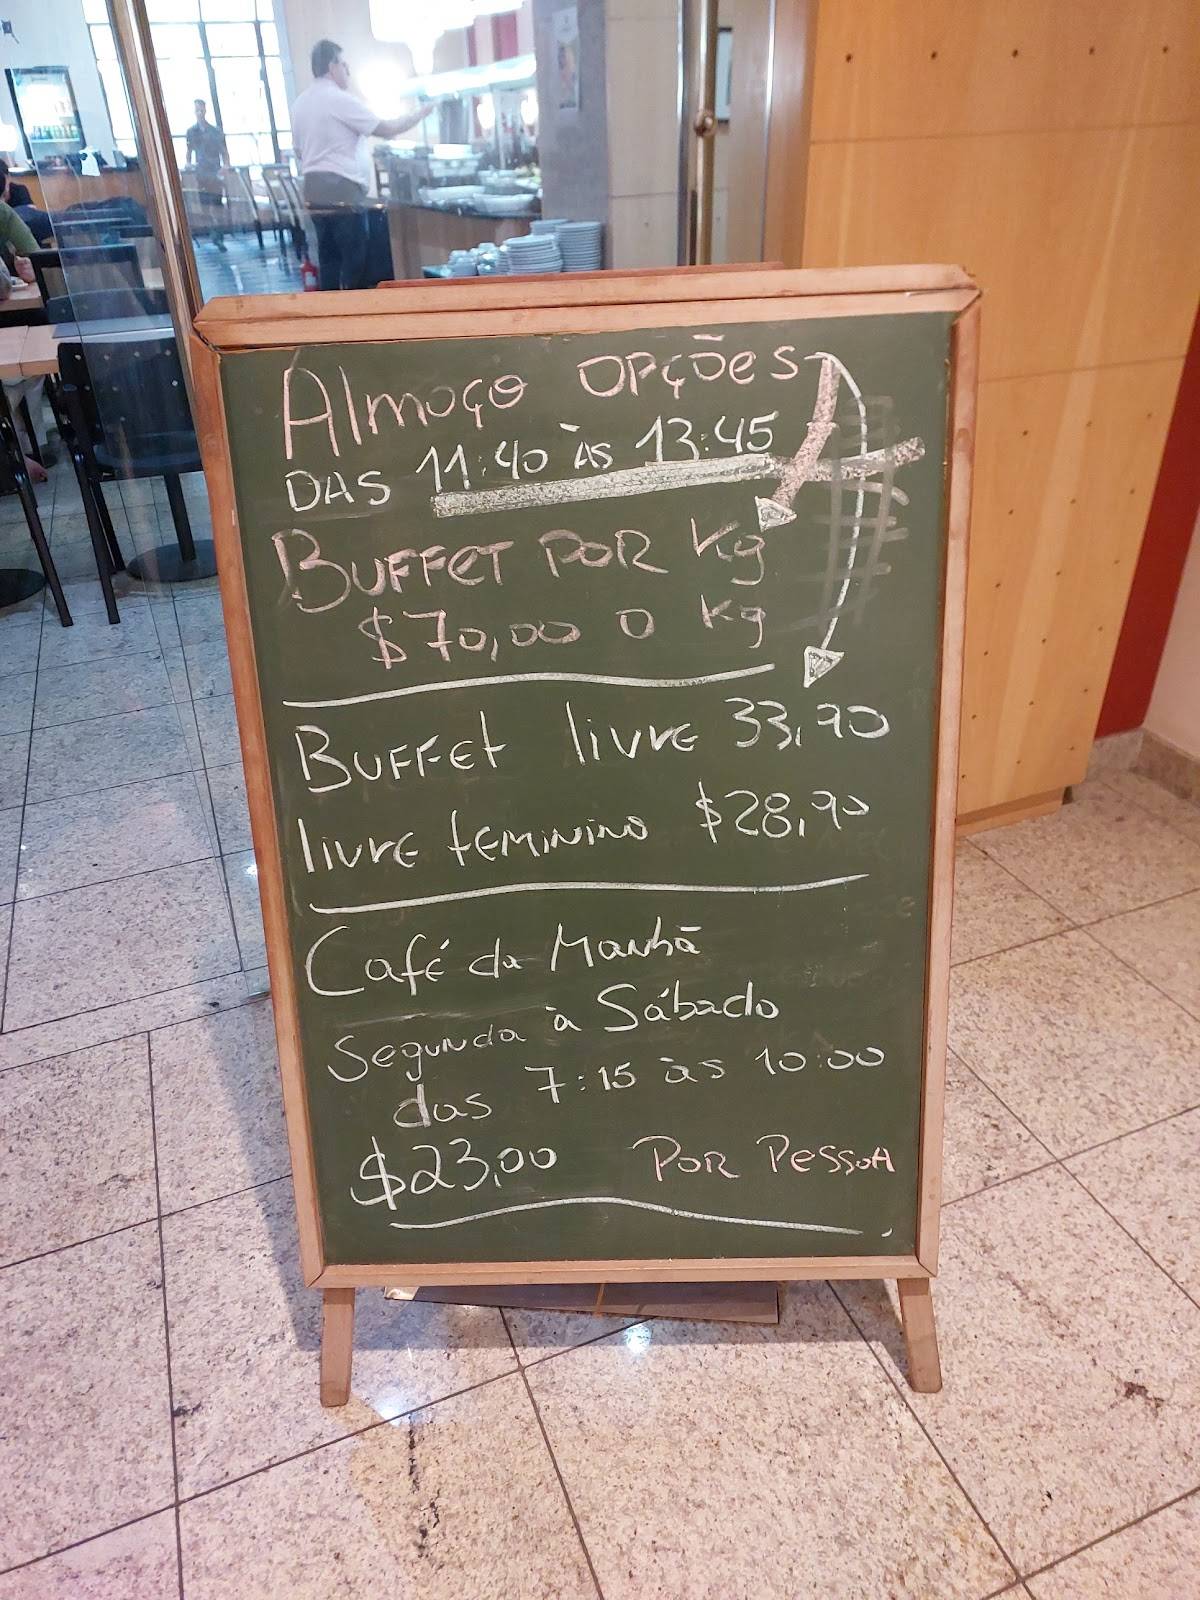 Almoço opções
DAS 11:40 às 13:45
BUFFET POR Kg
$70,00 o kg
BUFFEt livre 33,90
livre feminino $28,90
Café da Manhã
Segunda à Sábado
das 7:15 às 10:00
$23,00 POR PESSOA